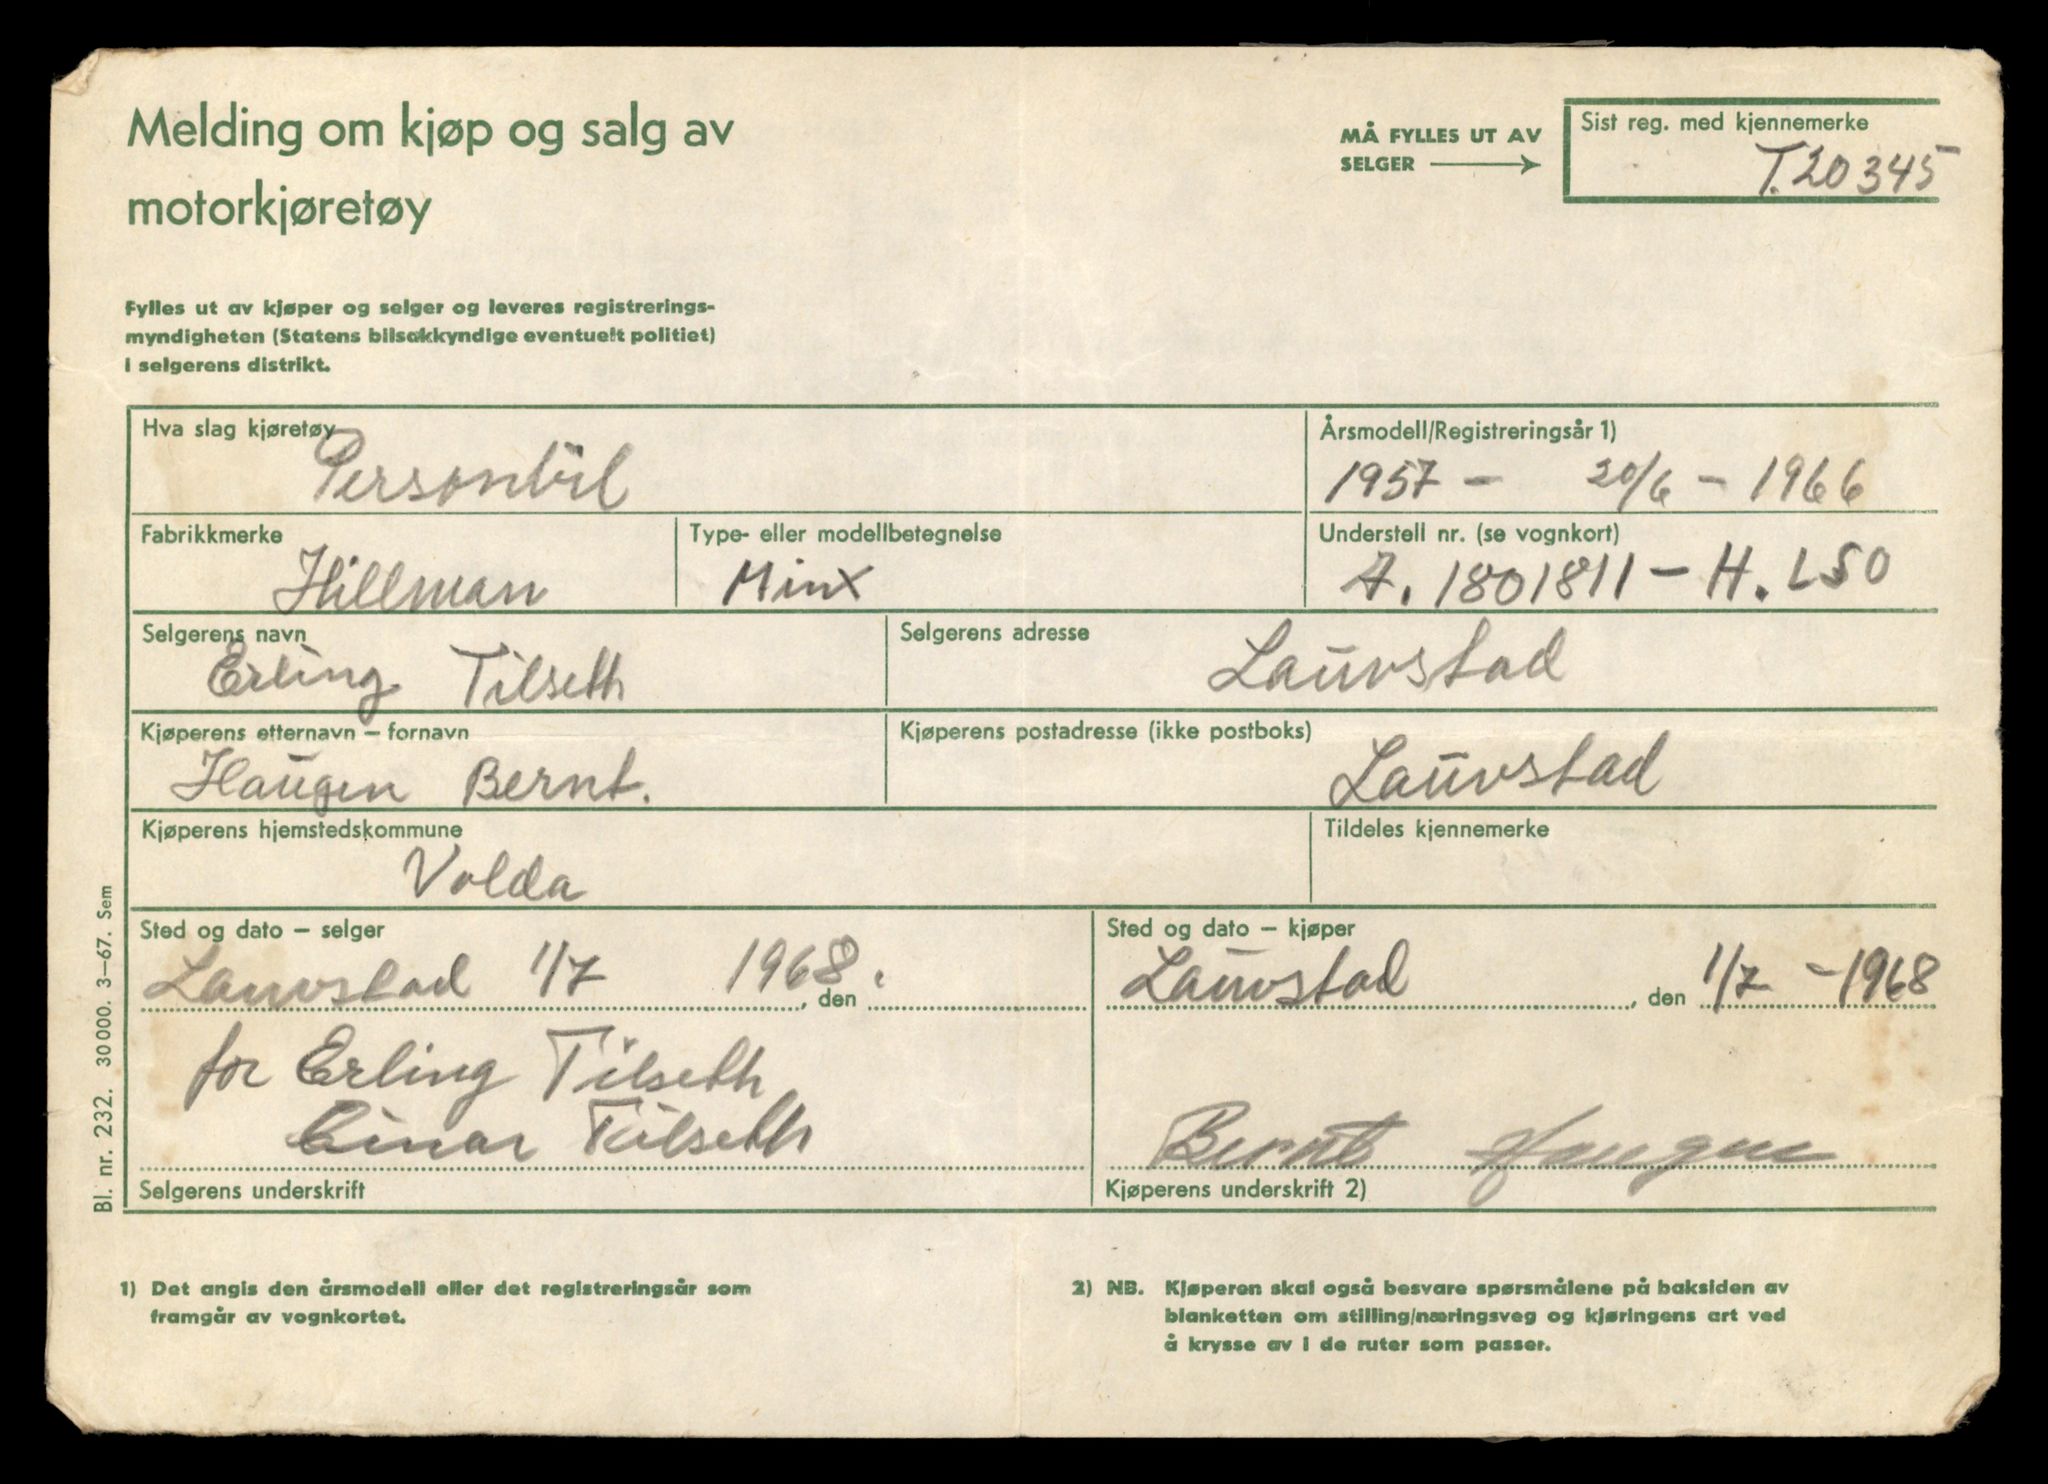 Melding om kjøp og salg av
motorkjøretøy
MÅ FYLLES UT AV
SELGER
Sist reg. med kjennemerke
T.20345
Fylles ut av kjøper og selger og leveres registrerings-
myndigheten (Statens bilsakkyndige eventuelt politiet)
i selgerens distrikt.
Hva slag kjøretøy
Personbil
Årsmodell/Registreringsår 1)
1957 - 20/6 - 1966
Fabrikkmerke
Hillman
Type- eller modellbetegnelse
Minx
Understell nr. (se vognkort)
A. 1801811 - H. LSO
Selgerens navn
Erling Tilseth
Selgerens adresse
Lauvstad
Kjøperens etternavn – fornavn
Haugen Bernt.
Kjøperens postadresse (ikke postboks)
Lauvstad
Kjøperens hjemstedskommune
Volda
Tildeles kjennemerke
Sted og dato – selger
Lauvstad 1/7 1968. , den
for Erling Tilseth
Einar Tilseth
Selgerens underskrift
Sted og dato – kjøper
Lauvstad , den 1/7 - 1968
Bernt Haugen
Kjøperens underskrift 2)
Bl. nr. 232. 30 000. 3–67. Sem
1) Det angis den årsmodell eller det registreringsår som
framgår av vognkortet.
2) NB. Kjøperen skal også besvare spørsmålene på baksiden av
blanketten om stilling/næringsveg og kjøringens art ved
å krysse av i de ruter som passer.